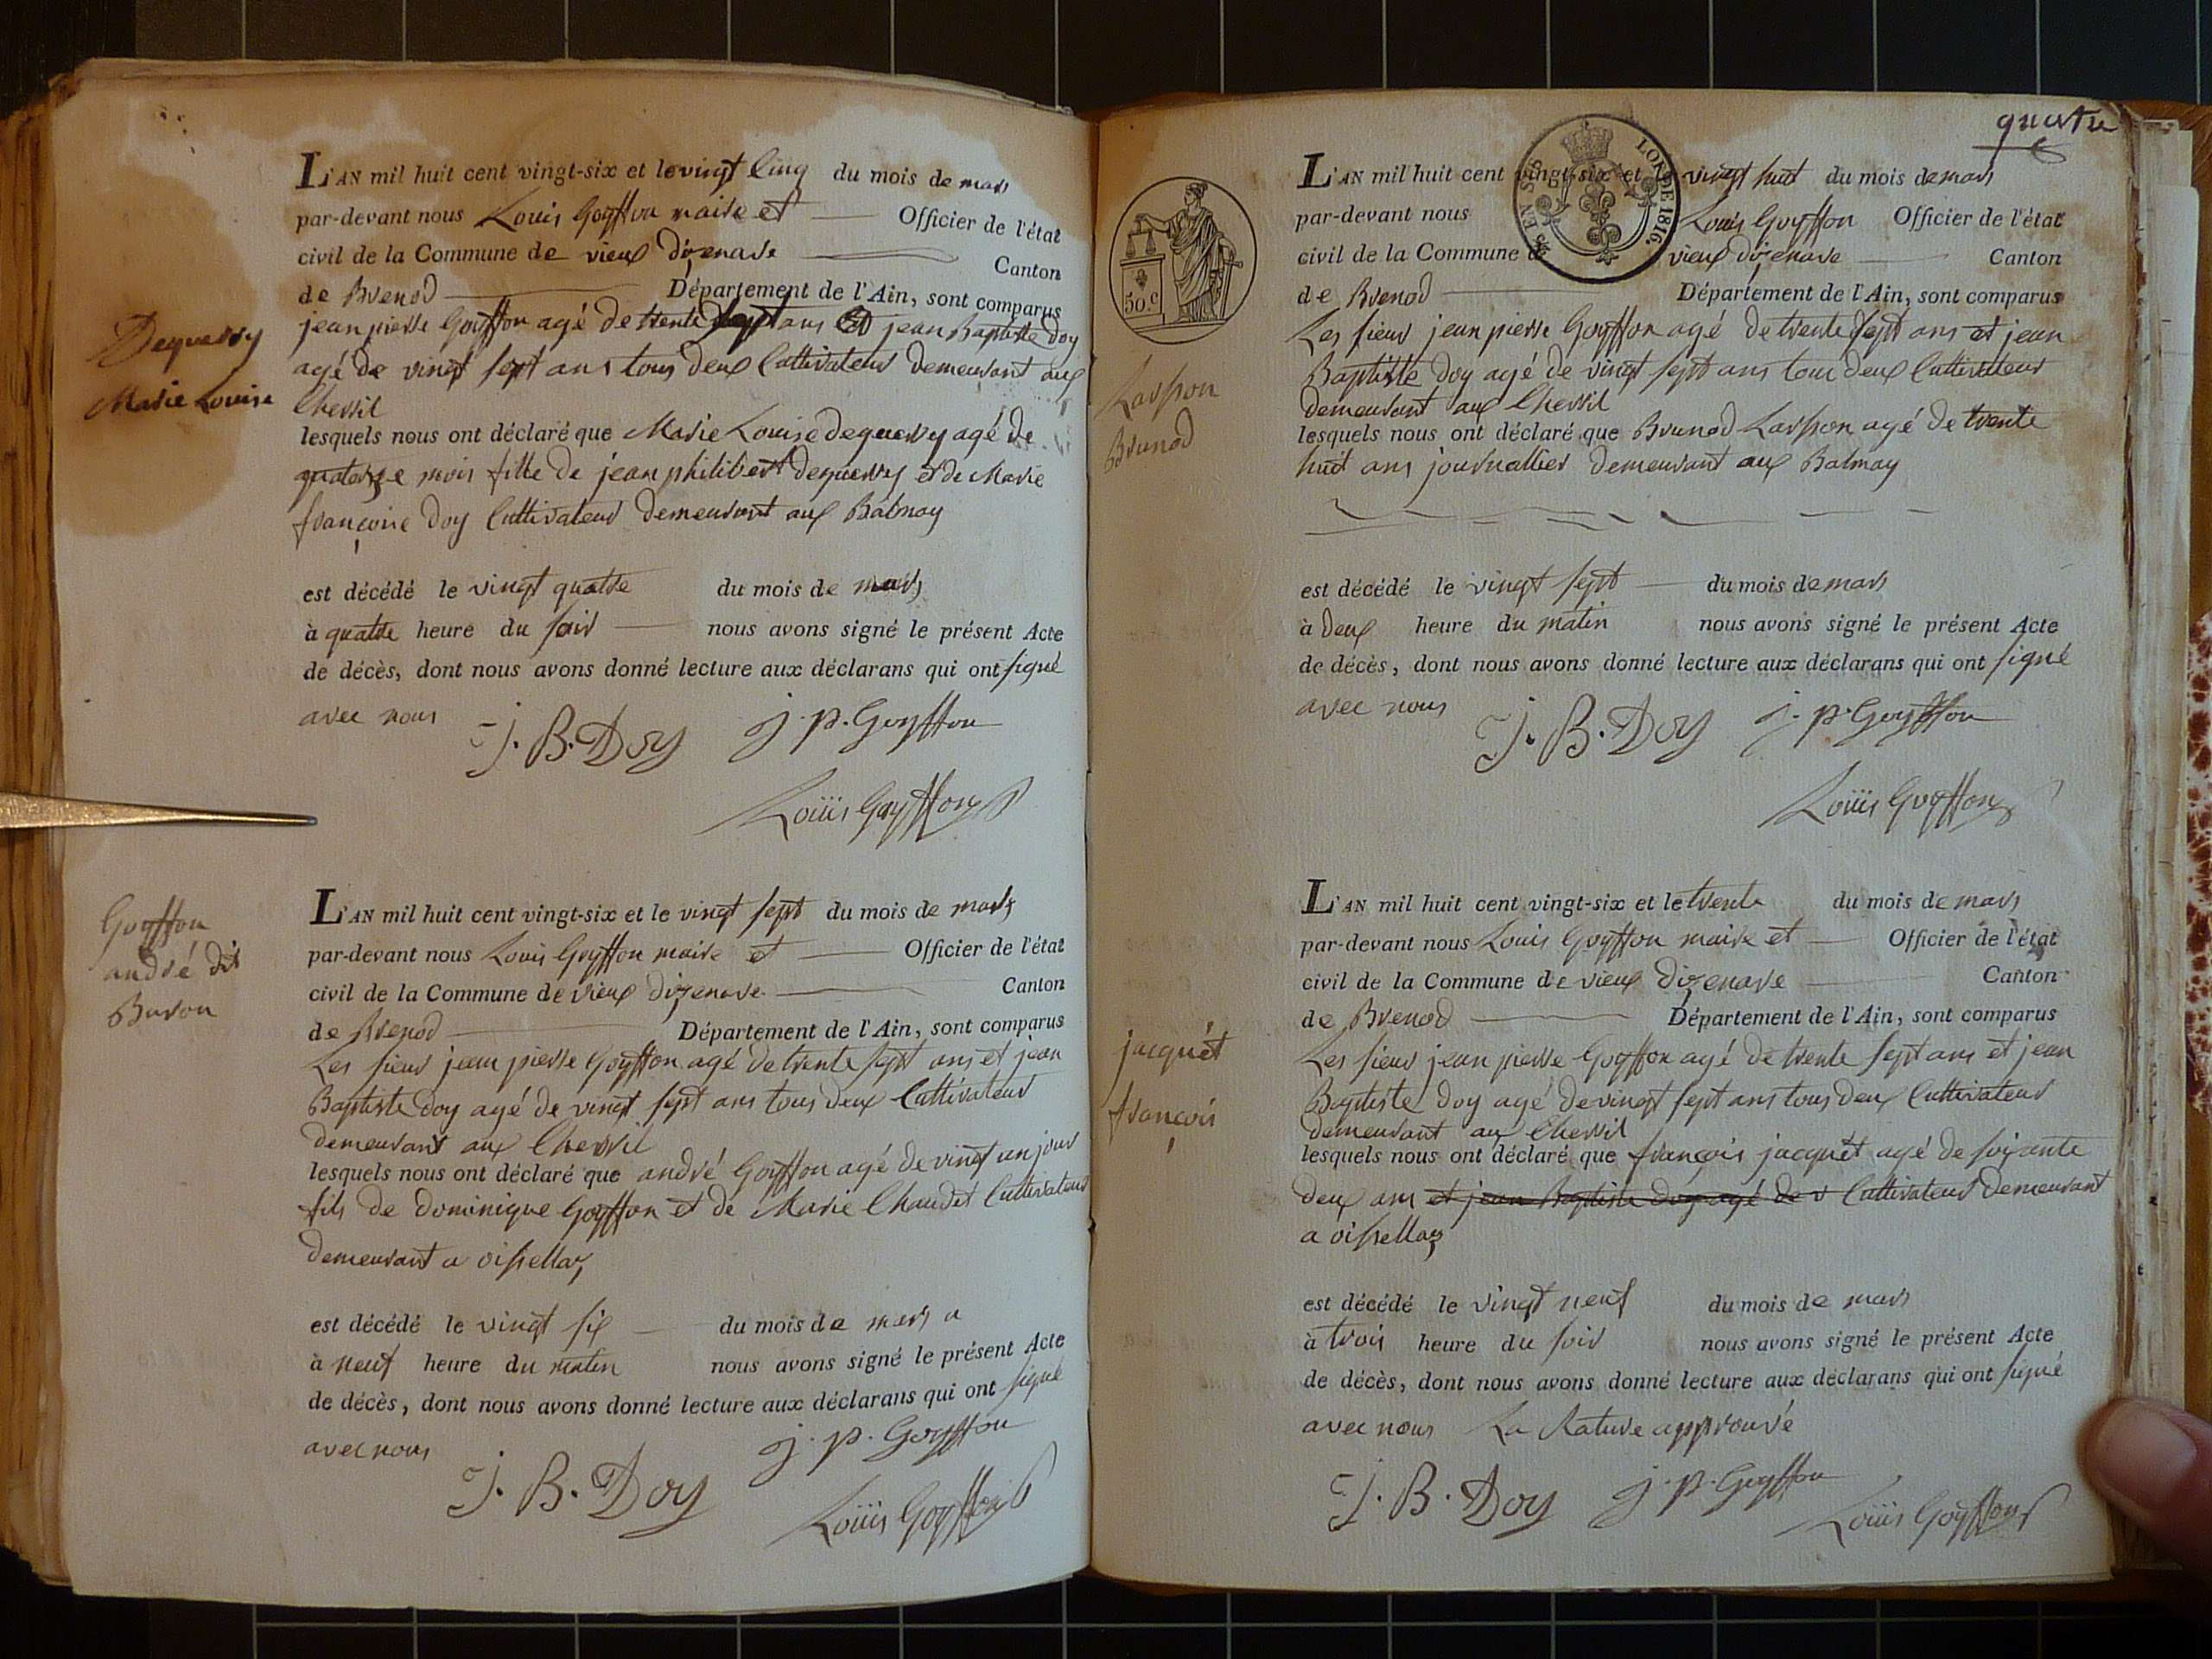 L'AN mil huit cent vingt-six et le vingt Cinq du mois de mars
par-devant nous Louis Goyffon maire et Officier de l'état
civil de la Commune de vieux dizenave Canton
de Brenod Département de l'Ain, sont comparus
jean pierre Goyffon agé de trente sept ans Et jean Baptiste Doy
agé de vingt sept ans tous deux Cultivateur demeurant aux
Chevril
Dequerry
Marie Louise
lesquels nous ont déclaré que Marie Louise dequerry agé de
quatorze mois fille de jean philibert dequerry et de Marie
françoise Doy Cultivateur demeurant aux Balmay
est décédé le vingt quatre du mois de mars
à quatre heure du soir nous avons signé le présent Acte
de décès, dont nous avons donné lecture aux déclarans qui ont signé
avec nous
J. B. Doy j. p. Goyffon
Louis Goyffon
L'AN mil huit cent vingt-six et le vingt sept du mois de mars
par-devant nous Louis Goyffon maire et Officier de l'état
civil de la Commune de vieux dizenave Canton
de Brenod Département de l'Ain, sont comparus
Goyffon
andré dit
Buron
Les sieur jean pierre Goyffon agé de trente sept ans et jean
Baptiste Doy agé de vingt sept ans tous deux Cultivateur
demeurant aux Chevril
lesquels nous ont déclaré que andré Goyffon agé de vingt un jour
fils de dominique Goyffon et de Marie Chaudet Cultivateur
demeurant a oissellaz
est décédé le vingt six du mois de mars a
à neuf heure du matin nous avons signé le présent Acte
de décès, dont nous avons donné lecture aux déclarans qui ont signé
avec nous
J. B. Doy j. p. Goyffon
Louis Goyffon
quatre
50.c
EN SUS LOI DE 1816.
L'AN mil huit cent vingt-six et le vingt huit du mois de mars
par-devant nous Louis Goyffon Officier de l'état
civil de la Commune de vieux dizenave Canton
de Brenod Département de l'Ain, sont comparus
Les sieur jean pierre Goyffon agé de trente sept ans et jean
Baptiste Doy agé de vingt sept ans tous deux Cultivateur
demeurant aux Chevril
Lasson
Brunod
lesquels nous ont déclaré que Brunod Lasson agé de trente
huit ans journallier demeurant aux Balmay
est décédé le vingt sept du mois de mars
à deux heure du matin nous avons signé le présent Acte
de décès, dont nous avons donné lecture aux déclarans qui ont signé
avec nous
J. B. Doy j. p. Goyffon
Louis Goyffon
L'AN mil huit cent vingt-six et le trente du mois de mars
par-devant nous Louis Goyffon maire et Officier de l'état
civil de la Commune de vieux dizenave Canton
de Brenod Département de l'Ain, sont comparus
jacquét
françois
Les sieur jean pierre Goyffon agé de trente sept ans et jean
Baptiste Doy agé de vingt sept ans tous deux Cultivateur
demeurant aux Chevril
lesquels nous ont déclaré que françois jacquét agé de soixante
deux ans et jean Baptiste doy agé de v Cultivateur demeurant
a oissellaz
est décédé le vingt neuf du mois de mars
à trois heure du soir nous avons signé le présent Acte
de décès, dont nous avons donné lecture aux déclarans qui ont signé
avec nous La Rature approuvé
J. B. Doy j. p. Goyffon Louis Goyffon